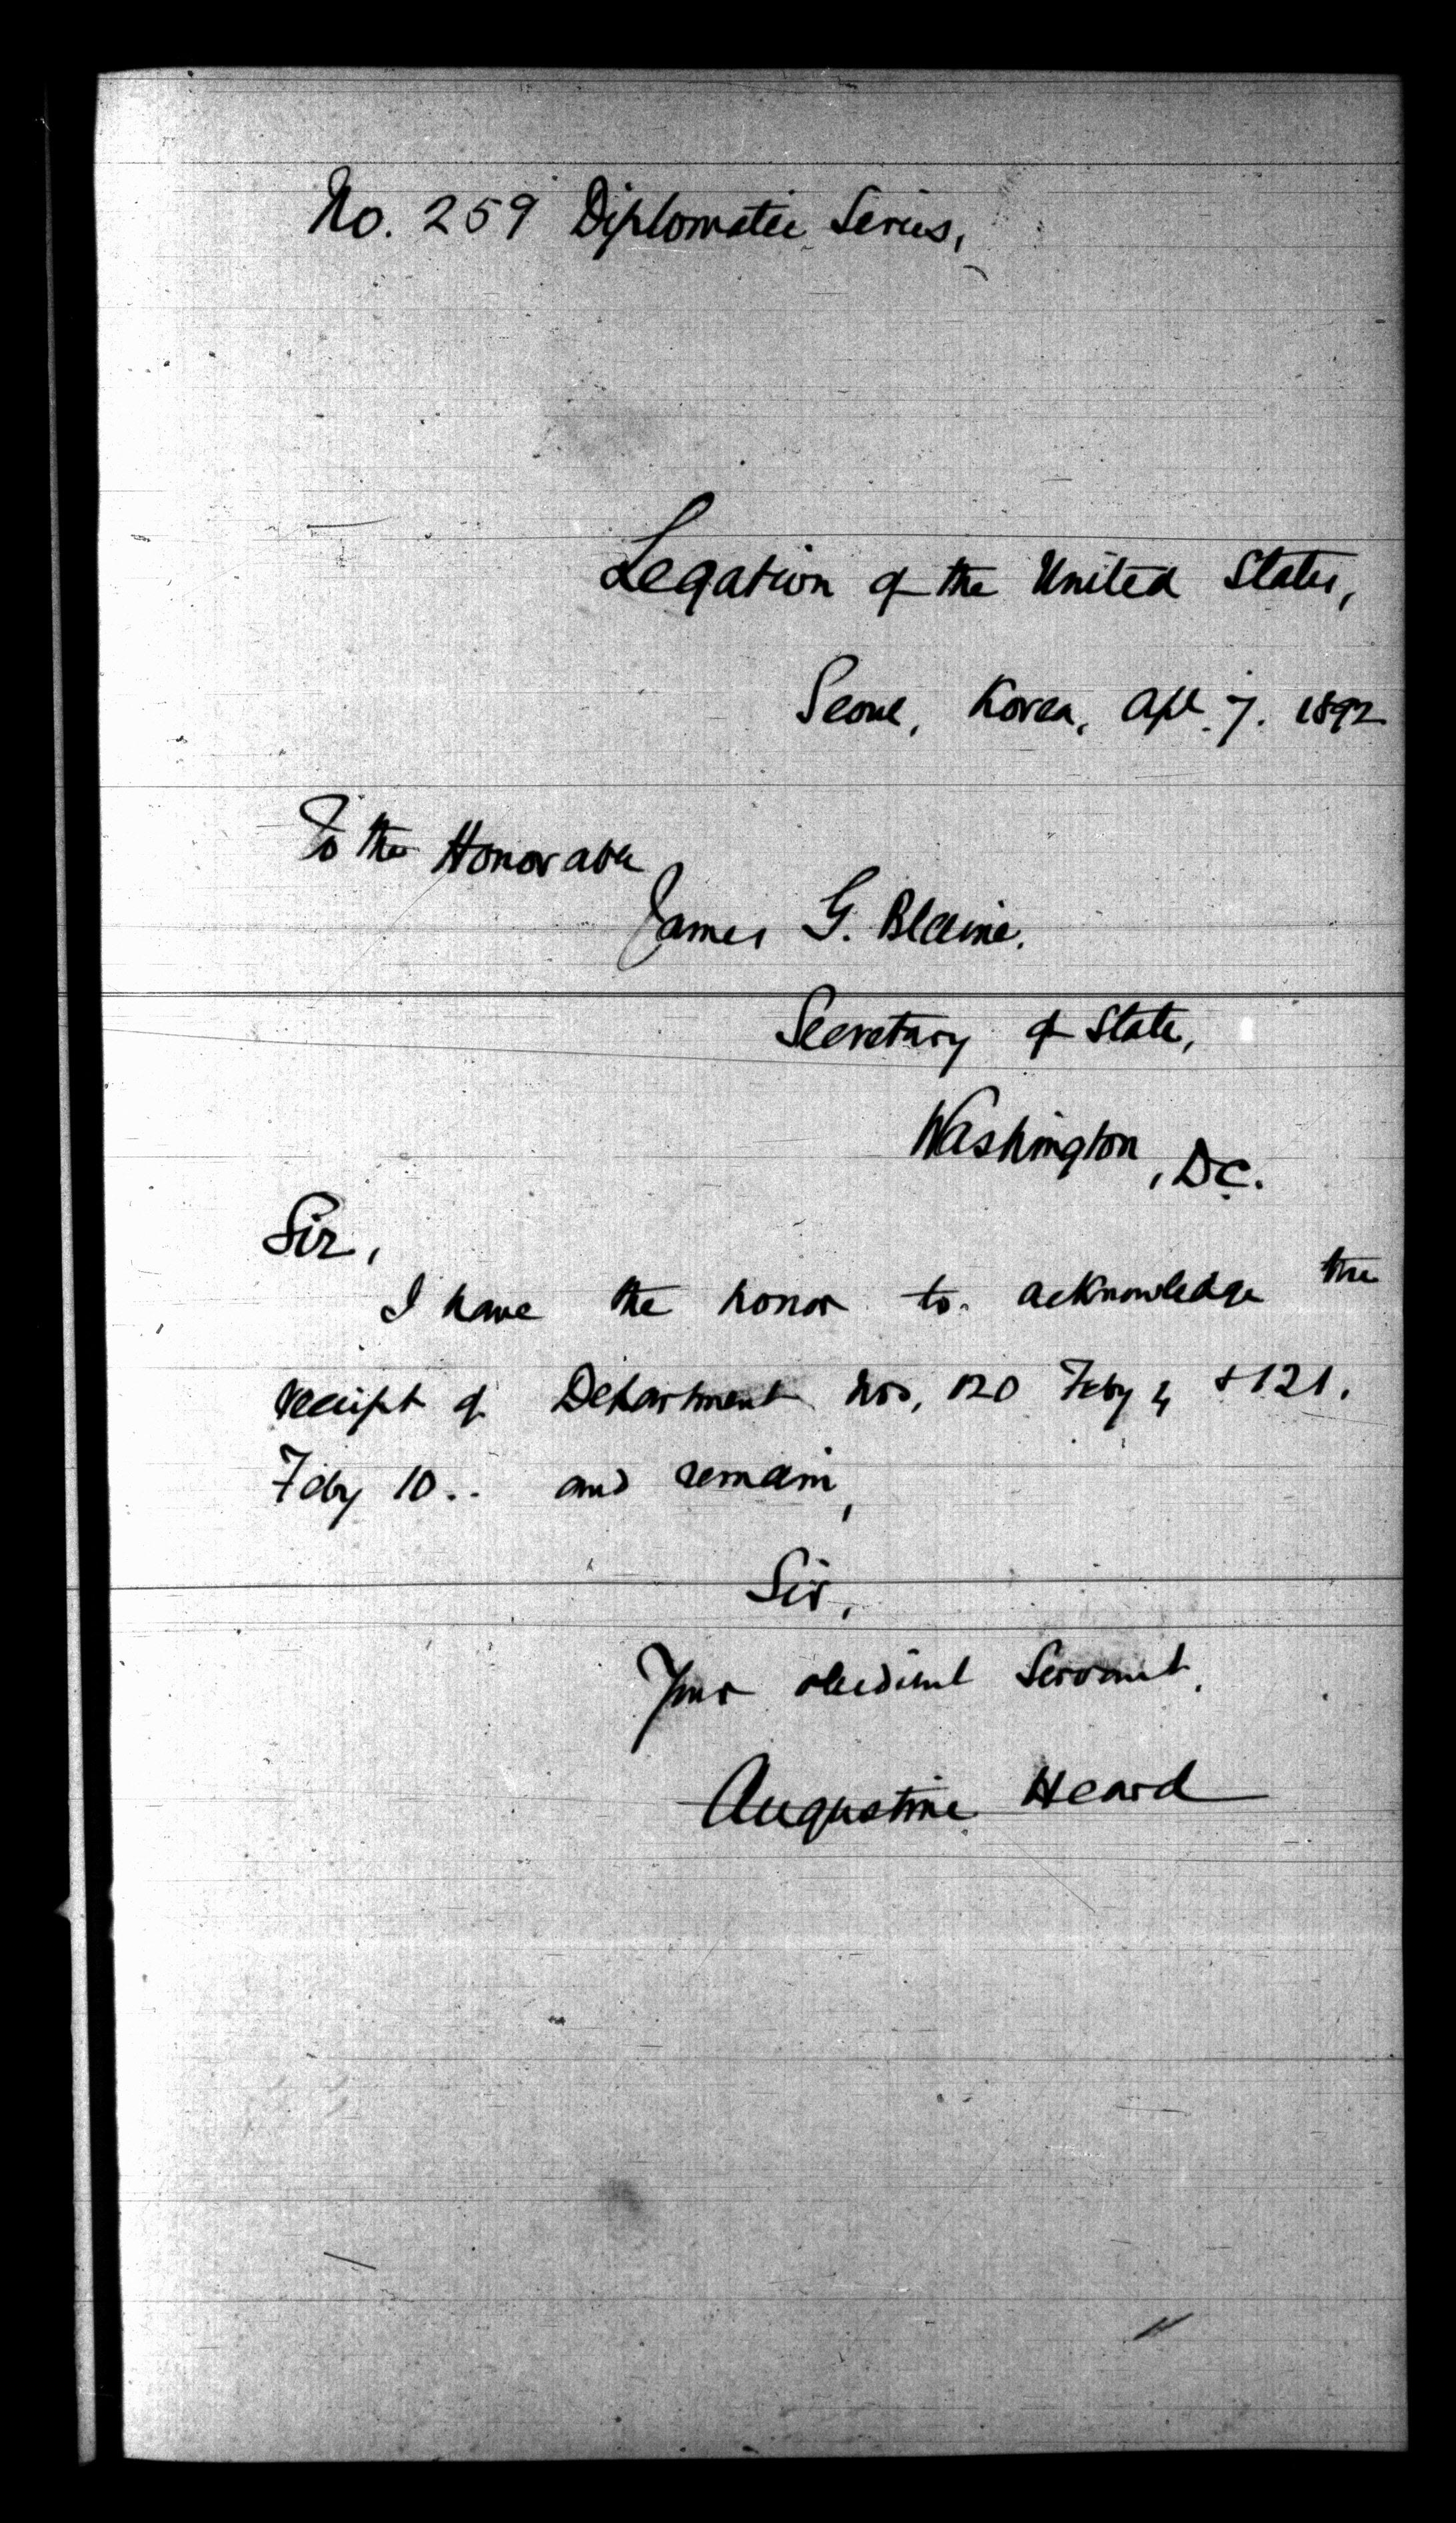 No. 259 Diplomatic Series,
Legation of the United States,
Seoul, Korea, Apl. 7. 1892
To the Honorable
James G. Blaine,
Secretary of State,
Washington, D.C.
Sir,
I have the honor to acknowledge the
receipt of Department Nos, 120 Feby 4 & 121.
Feby 10.. and remain,
Sir,
Your obedient Servant,
Augustine Heard